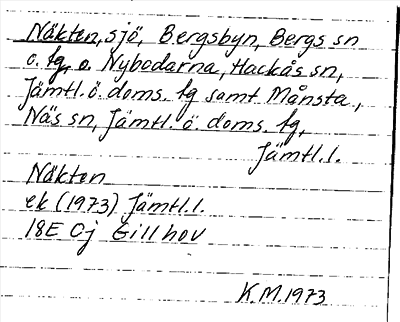 Näkten, sjö, Bergsbyn, Bergs sn
o. tg, o. Nybodarna, Hackås sn,
Jämtl. ö. doms. tg samt Månsta,
Näs sn, Jämtl. ö. doms. tg,
Jämtl. l.
Näkten
ek (1973) Jämtl. l.
18E 0j Gillhov
K.M. 1973